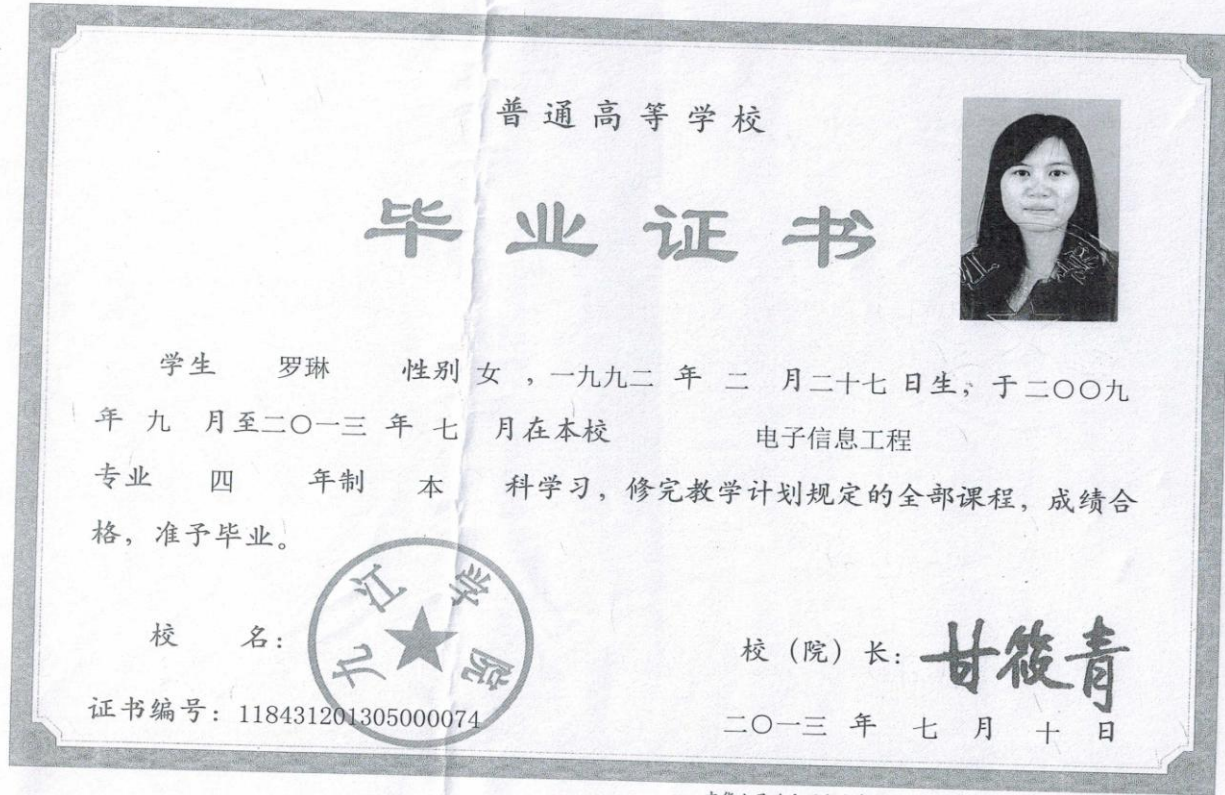 普通高等学校
毕业证书
学生 罗琳 性别 女 ，一九九二 年 二 月二十七 日生，于二〇〇九
年 九 月至二〇一三 年 七 月在本校 电子信息工程
专业 四 年制 本 科学习，修完教学计划规定的全部课程，成绩合
格，准予毕业。
九江学院
校 名：
校（院）长：甘筱青
证书编号：118431201305000074
二〇一三 年 七 月 十 日